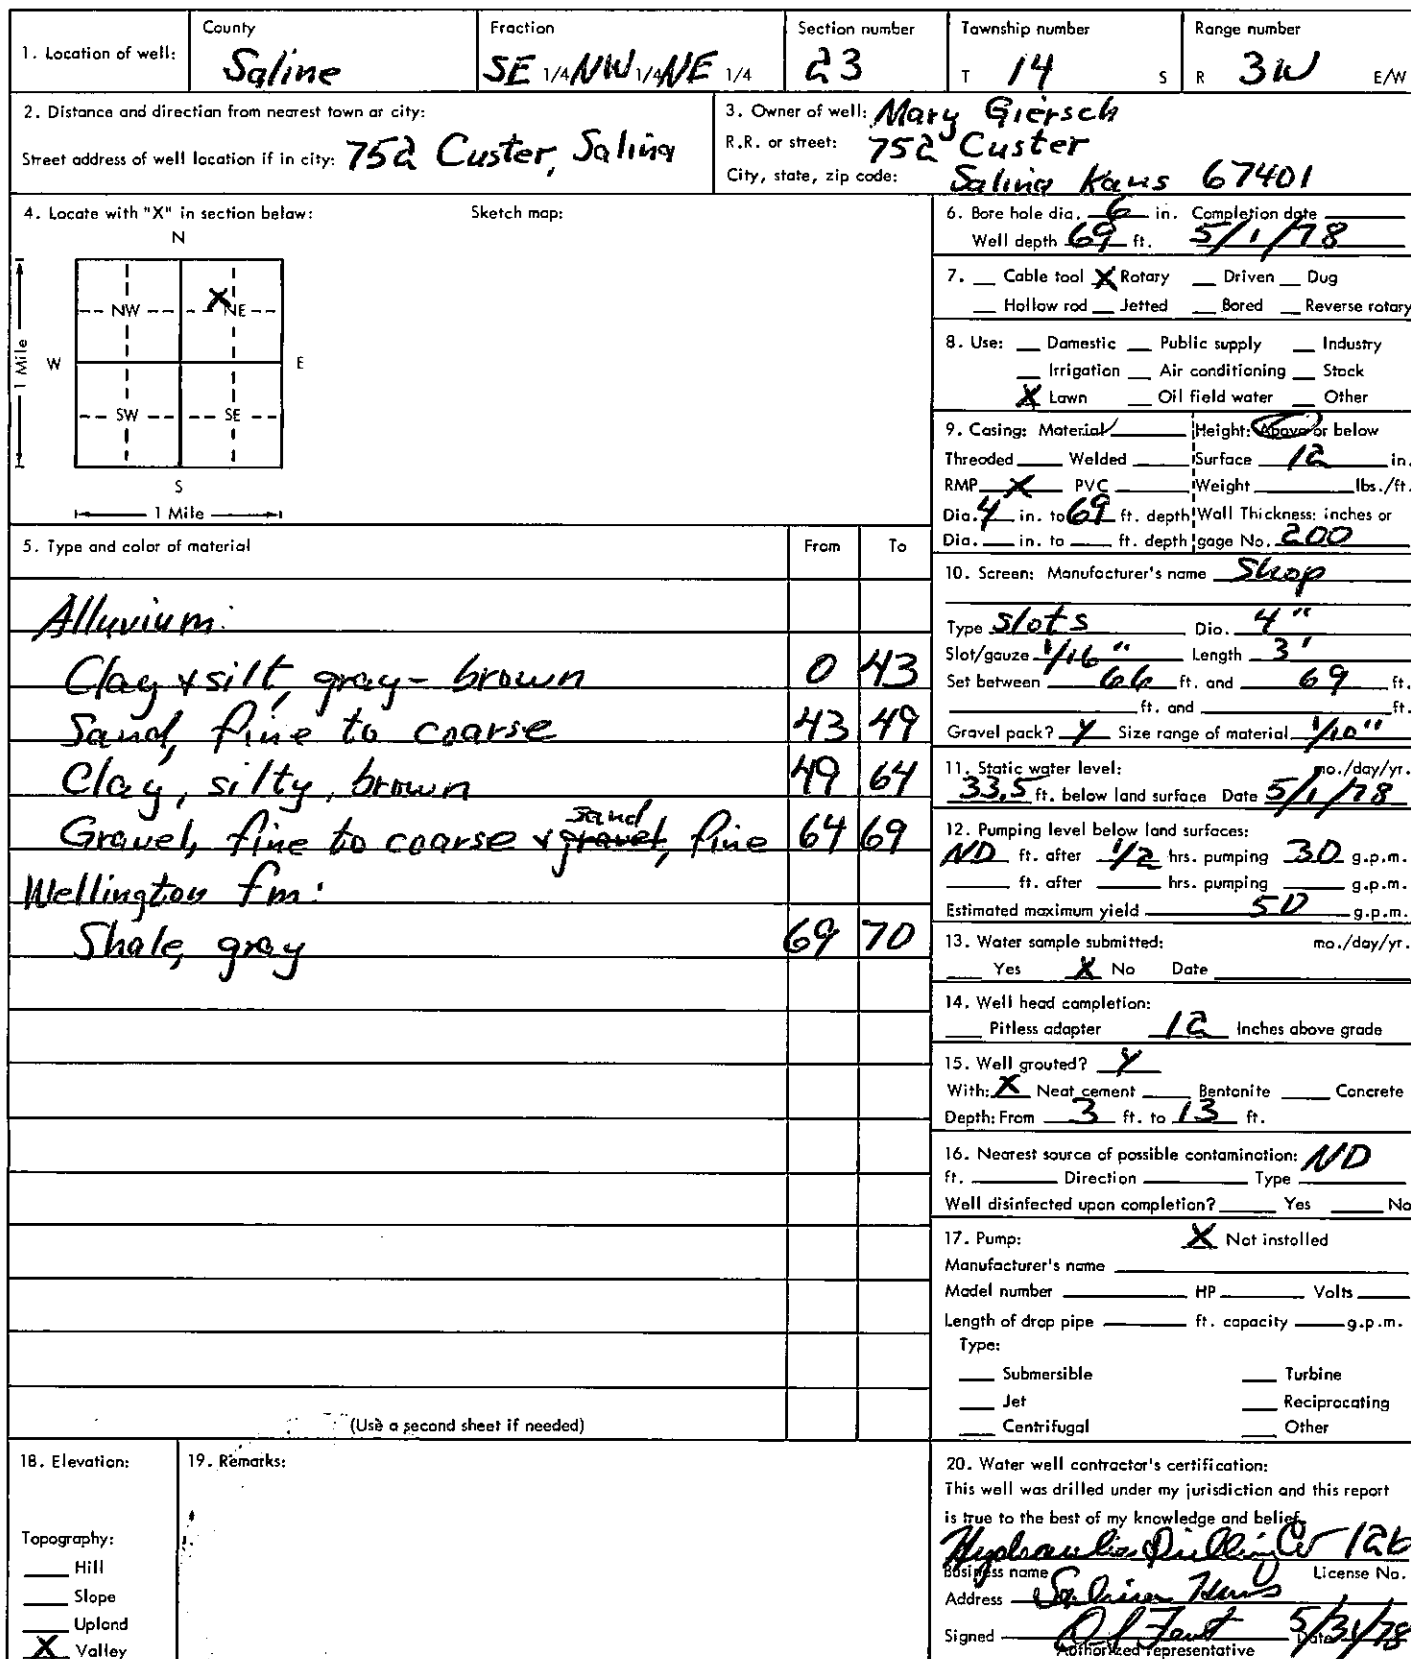 1. Location of well: County Saline Fraction SE 1/4 NW 1/4 NE 1/4 Section number 23 Township number T 14 S Range number R 3W E/W
2. Distance and direction from nearest town or city:
Street address of well location if in city: 752 Custer, Salina
3. Owner of well: Mary Giersch
R.R. or street: 752 Custer
City, state, zip code: Salina Kans 67401
4. Locate with "X" in section below: Sketch map:
N
NW X NE
W E
SW SE
S
1 Mile
1 Mile
5. Type and color of material From To
Alluvium:
Clay & silt, gray-brown 0 43
Sand, fine to coarse 43 49
Clay, silty, brown 49 64
Gravel, fine to coarse & gravel sand, fine 64 69
Wellington fm:
Shale, gray 69 70
(Use a second sheet if needed)
6. Bore hole dia. 6 in. Completion date
Well depth 69 ft. 5/1/78
7. Cable tool X Rotary Driven Dug
Hollow rod Jetted Bored Reverse rotary
8. Use: Domestic Public supply Industry
Irrigation Air conditioning Stock
X Lawn Oil field water Other
9. Casing: Material Height: Above or below
Threaded Welded Surface 12 in.
RMP X PVC Weight lbs./ft.
Dia. 4 in. to 69 ft. depth Wall Thickness: inches or
Dia. in. to ft. depth gage No. 200
10. Screen: Manufacturer's name Shop
Type slots Dia. 4"
Slot/gauze 1/16" Length 3'
Set between 66 ft. and 69 ft.
ft. and ft.
Gravel pack? Y Size range of material 1/10"
11. Static water level: mo./day/yr.
33.5 ft. below land surface Date 5/1/78
12. Pumping level below land surfaces:
ND ft. after 1/2 hrs. pumping 30 g.p.m.
ft. after hrs. pumping g.p.m.
Estimated maximum yield 50 g.p.m.
13. Water sample submitted: mo./day/yr.
Yes X No Date
14. Well head completion:
Pitless adapter 12 Inches above grade
15. Well grouted? Y
With: X Neat cement Bentonite Concrete
Depth: From 3 ft. to 13 ft.
16. Nearest source of possible contamination: ND
ft. Direction Type
Well disinfected upon completion? Yes No
17. Pump: X Not installed
Manufacturer's name
Model number HP Volts
Length of drop pipe ft. capacity g.p.m.
Type:
Submersible Turbine
Jet Reciprocating
Centrifugal Other
18. Elevation:
Topography:
Hill
Slope
Upland
X Valley
19. Remarks:
20. Water well contractor's certification:
This well was drilled under my jurisdiction and this report
is true to the best of my knowledge and belief.
Hydraulic Drilling Co 126
Business name License No.
Address Salina Kans
Signed 5/31/78 Date
Authorized representative